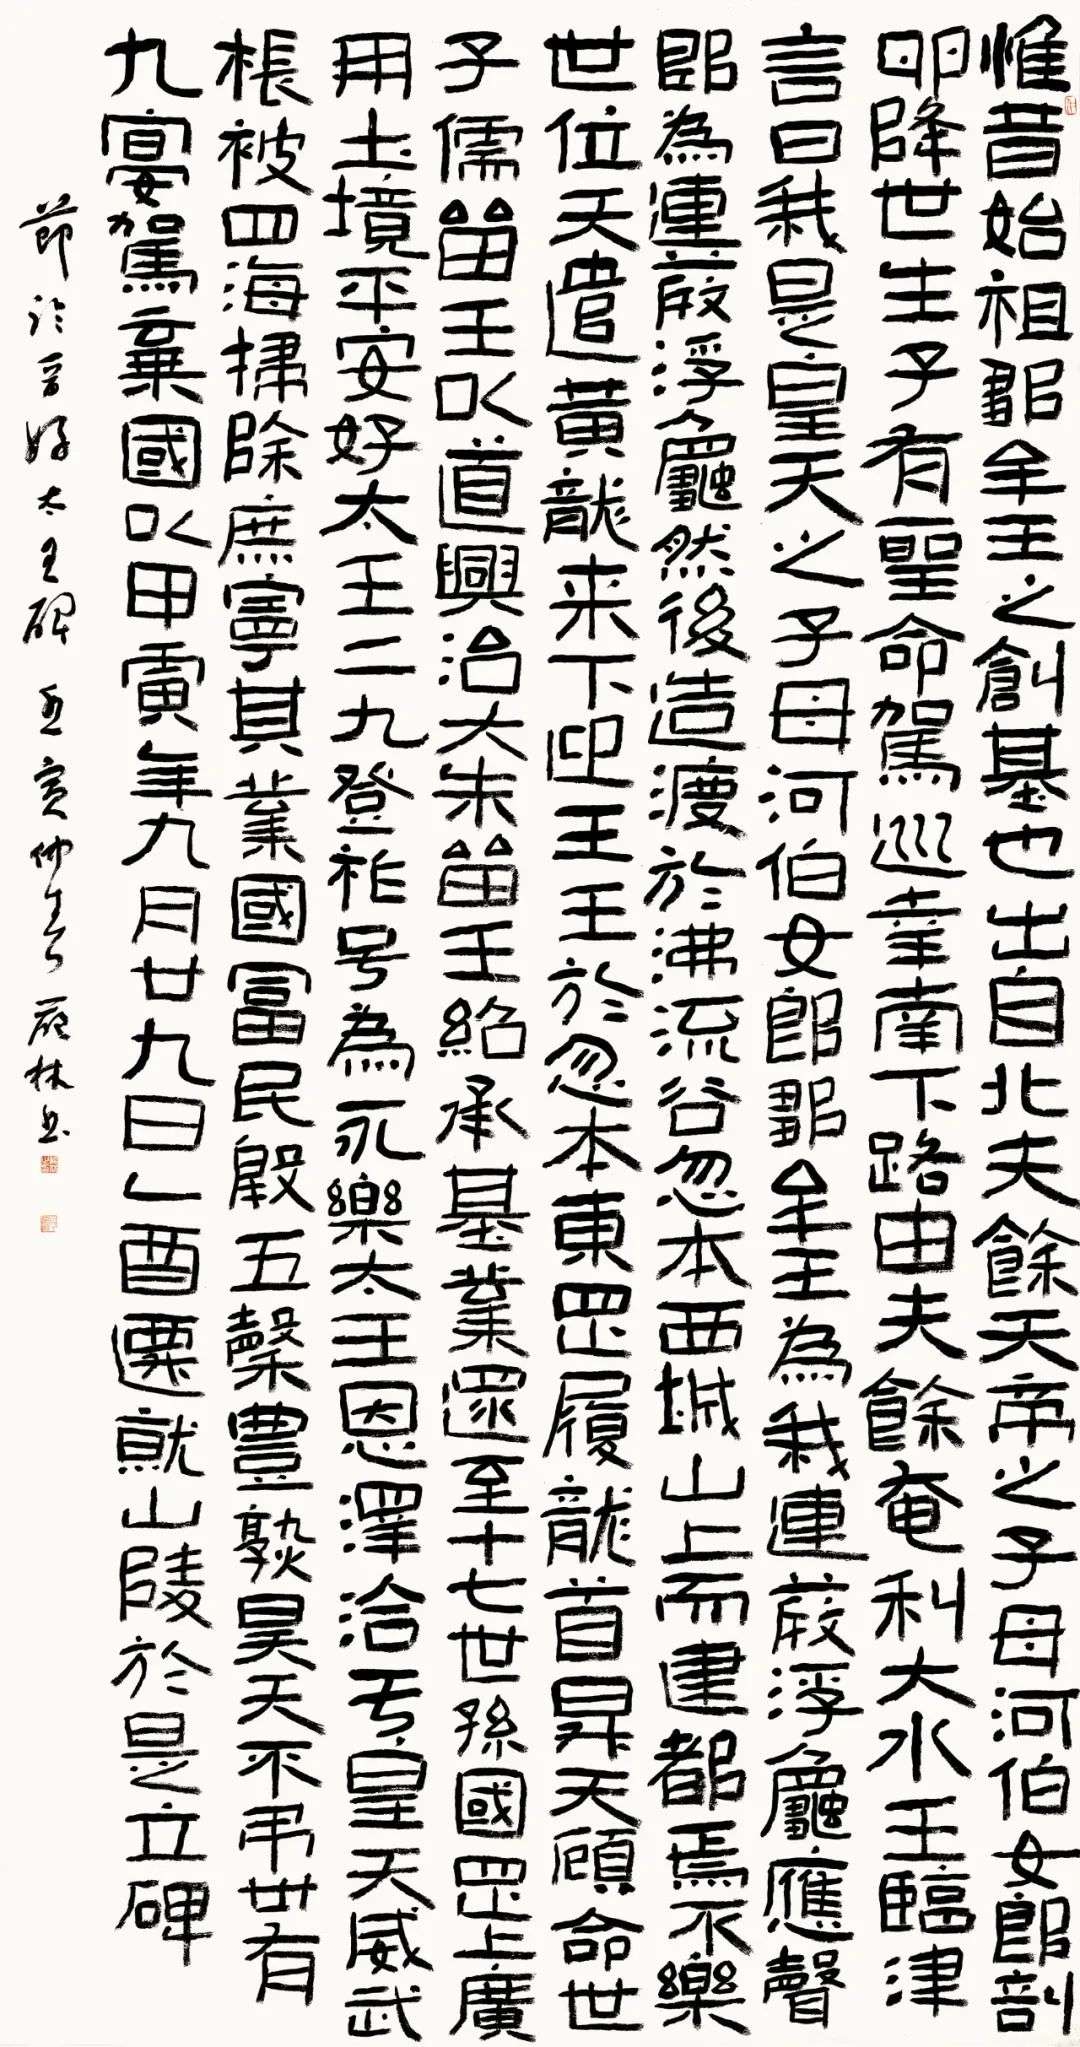 惟昔始祖鄒牟王之創基也出自北夫餘天帝之子母河伯女郎剖
卵降世生子有聖命駕巡幸南下路由夫餘奄利大水王臨津
言曰我是皇天之子母河伯女郎鄒牟王為我連葭浮龜應聲
即為連葭浮龜然後造渡於沸流谷忽本西城山上而建都焉不樂
世位天遣黃龍来下迎王王於忽本東罡履龍首昇天顧命世
子儒留王以道興治大朱留王紹承基業遝至十七世孫國罡上廣
用土境平安好太王二九登祚号為永樂太王恩澤洽于皇天威武
棖被四海掃除庶寧其業國冨民殷五穀豊熟昊天不弔世有
九宴駕棄國以甲寅年九月廿九日乙酉遷就山陵於是立碑
節临晋好太王碑 壬寅仲春 林书